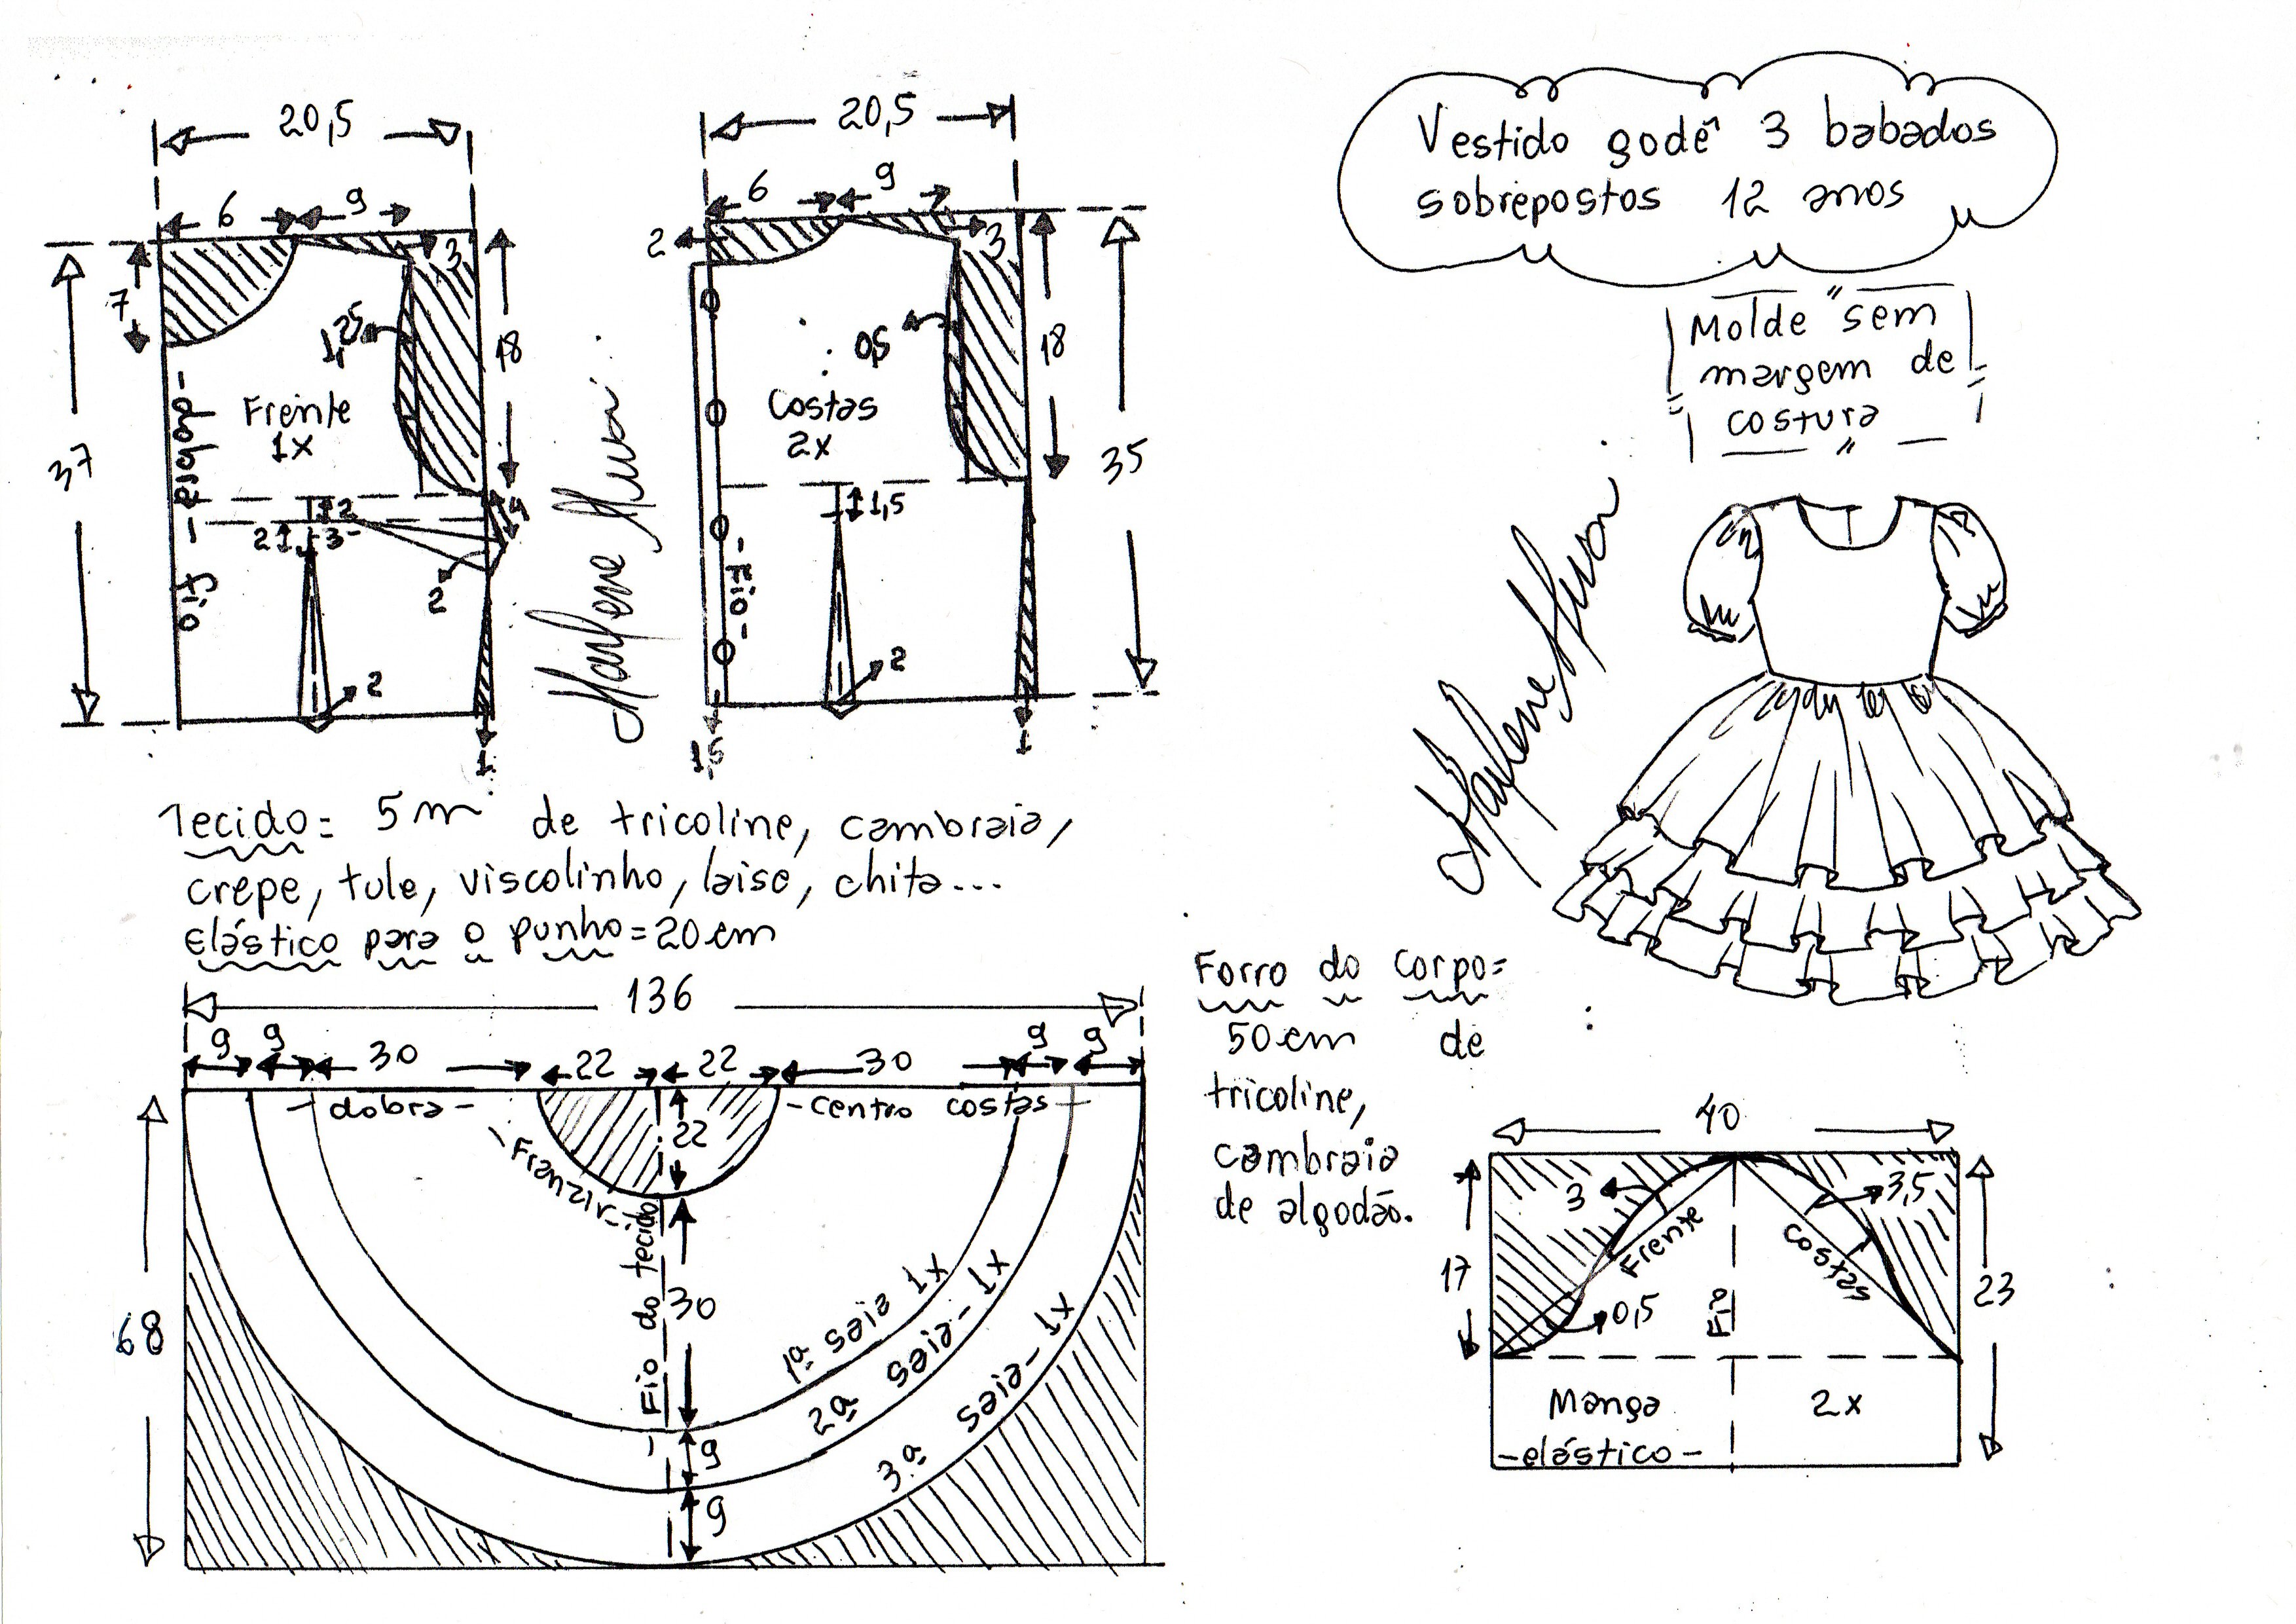 Vestido godê 3 babados
sobrepostos 12 anos
Molde "sem
margem de
costura"
20,5
6
9
3
7
1,25
18
37
Frente
1x
- dobra -
fio
2
4
2
3
2
2
1
Marlene Mukai
20,5
6
9
2
3
0,5
18
35
Costas
2x
1,5
- Fio -
2
1,5
1
Marlene Mukai
Tecido = 5 m de tricoline, cambraia,
crepe, tule, viscolinho, laise, chita...
elástico para o punho = 20 cm
136
9 9 30 22 22 30 9 9
- dobra -
- centro costas -
22
- Franzir -
Fio do tecido
30
68
1ª saia 1x
2ª saia - 1x
3ª saia - 1x
9
9
Forro do corpo =
50 cm de
tricoline,
cambraia
de algodão.
40
3
3,5
17
23
Frente
Costas
Fio
0,5
Manga 2x
- elástico -